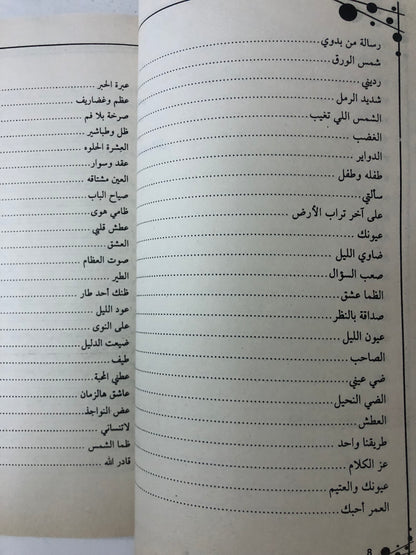 رسالة من بدوي
شمس الورق
رديني
شديد الرمل
الشمس اللي تغيب
الغضب
الدواير
طفله وطفل
سألتي
على آخر تراب الأرض
عيونك
ضاوي الليل
صعب السؤال
الظما عشق
صداقة بالنظر
عيون الليل
الصاحب
ضي عيني
الضي النحيل
العطش
طريقنا واحد
عز الكلام
عيونك والعتيم
العمر أحبك
8
عبرة الحبر
عظم وغضاريف
صرخة بلا فم
ظل وطباشير
العشرة الحلوه
عقد وسوار
العين مشتاقه
صباح الباب
ظامي هوى
عطش قلبي
العشق
صوت العظام
الطير
ظنك أحد طار
عود الليل
على النوى
ضيعت الدليل
طيف
عطني المحبة
عاشق هالزمان
عض النواجذ
لاتنساني
ظما الشمس
قادر الله